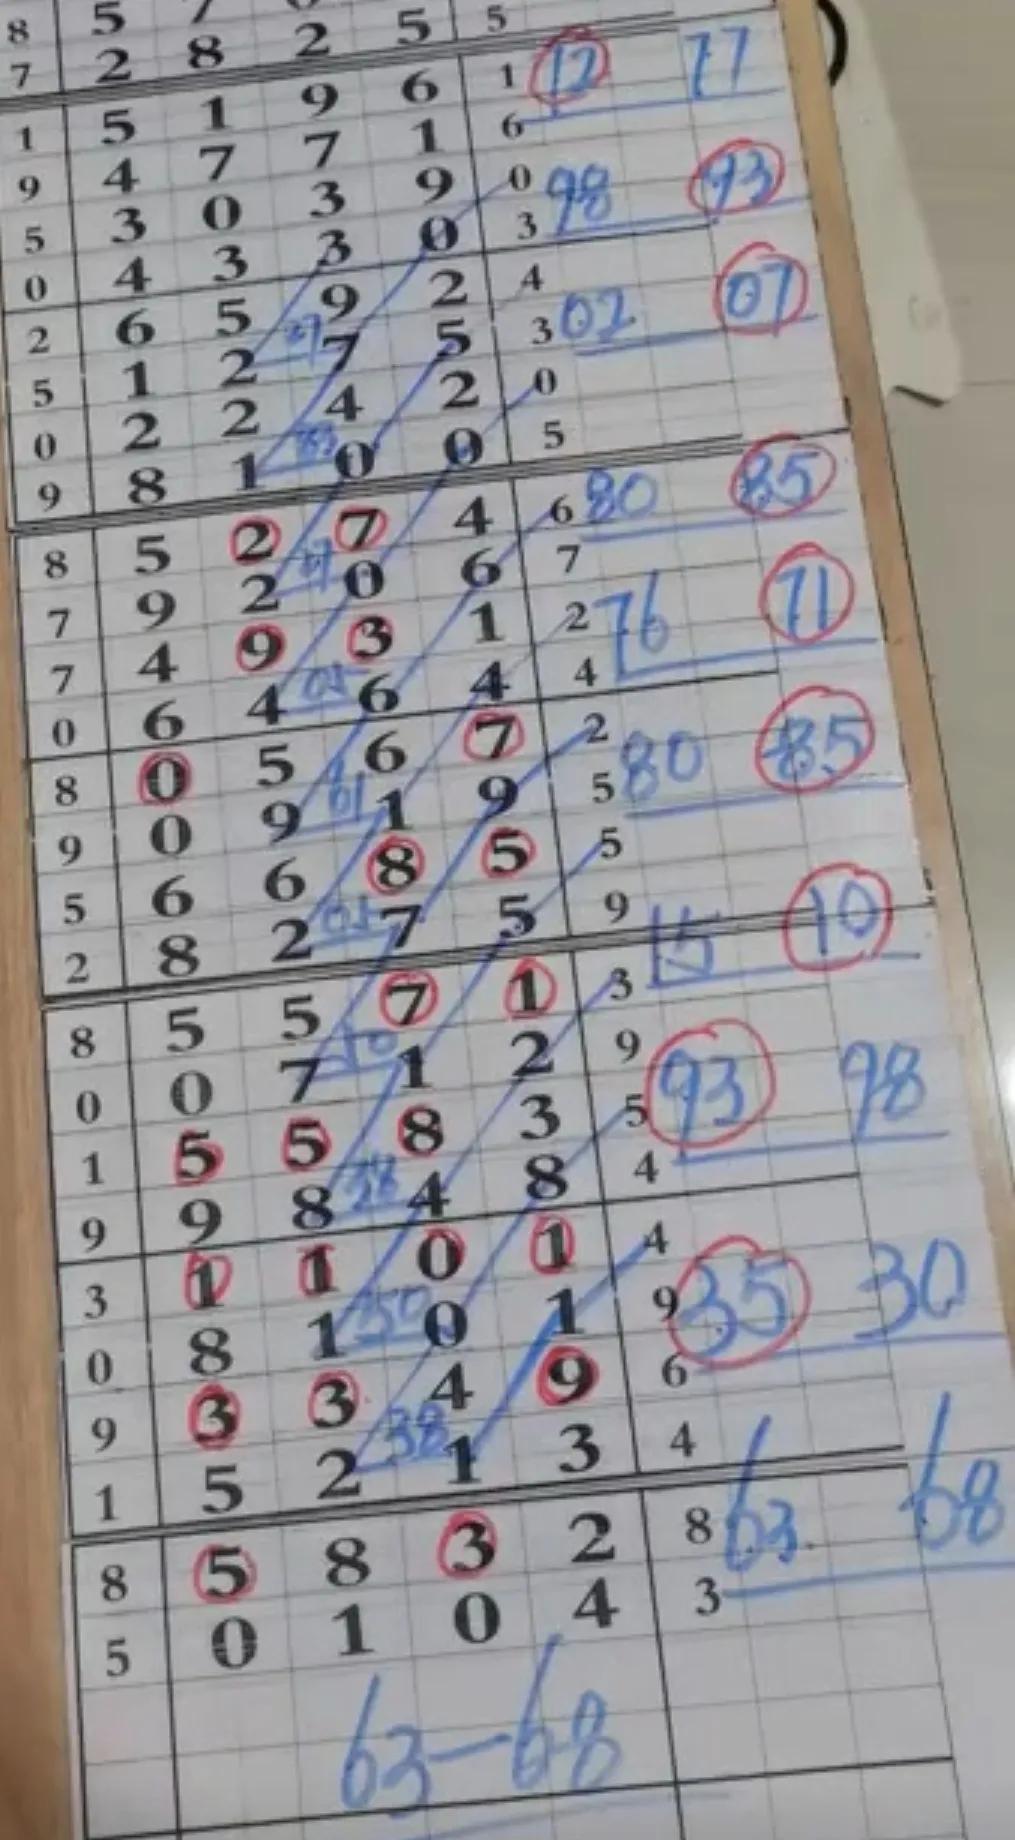 8 5 7
7 2 8 2 5 5
1 5 1 9 6 1 12 77
9 4 7 7 1 6
5 3 0 3 9 0 98 93
0 4 3 3 0 3
2 6 5 9 2 4
5 1 2 27 7 5 3 02 07
0 2 2 4 2 0
9 8 1 0 0 5
8 5 2 7 4 6 80 85
7 9 2 0 6 7
7 4 9 3 1 2 76 71
0 6 4 6 4 4
8 0 5 6 7 2
9 0 9 1 9 5 80 85
5 6 6 8 5 5
2 8 2 7 5 9 15 10
8 5 5 7 1 3
0 0 7 10 1 2 9 93 98
1 5 5 8 3 5
9 9 8 38 4 8 4
3 1 1 0 1 4
0 8 1 30 0 1 9 35 30
9 3 3 4 9 6
1 5 2 38 1 3 4
8 5 8 3 2 8 63 68
5 0 1 0 4 3
63-68